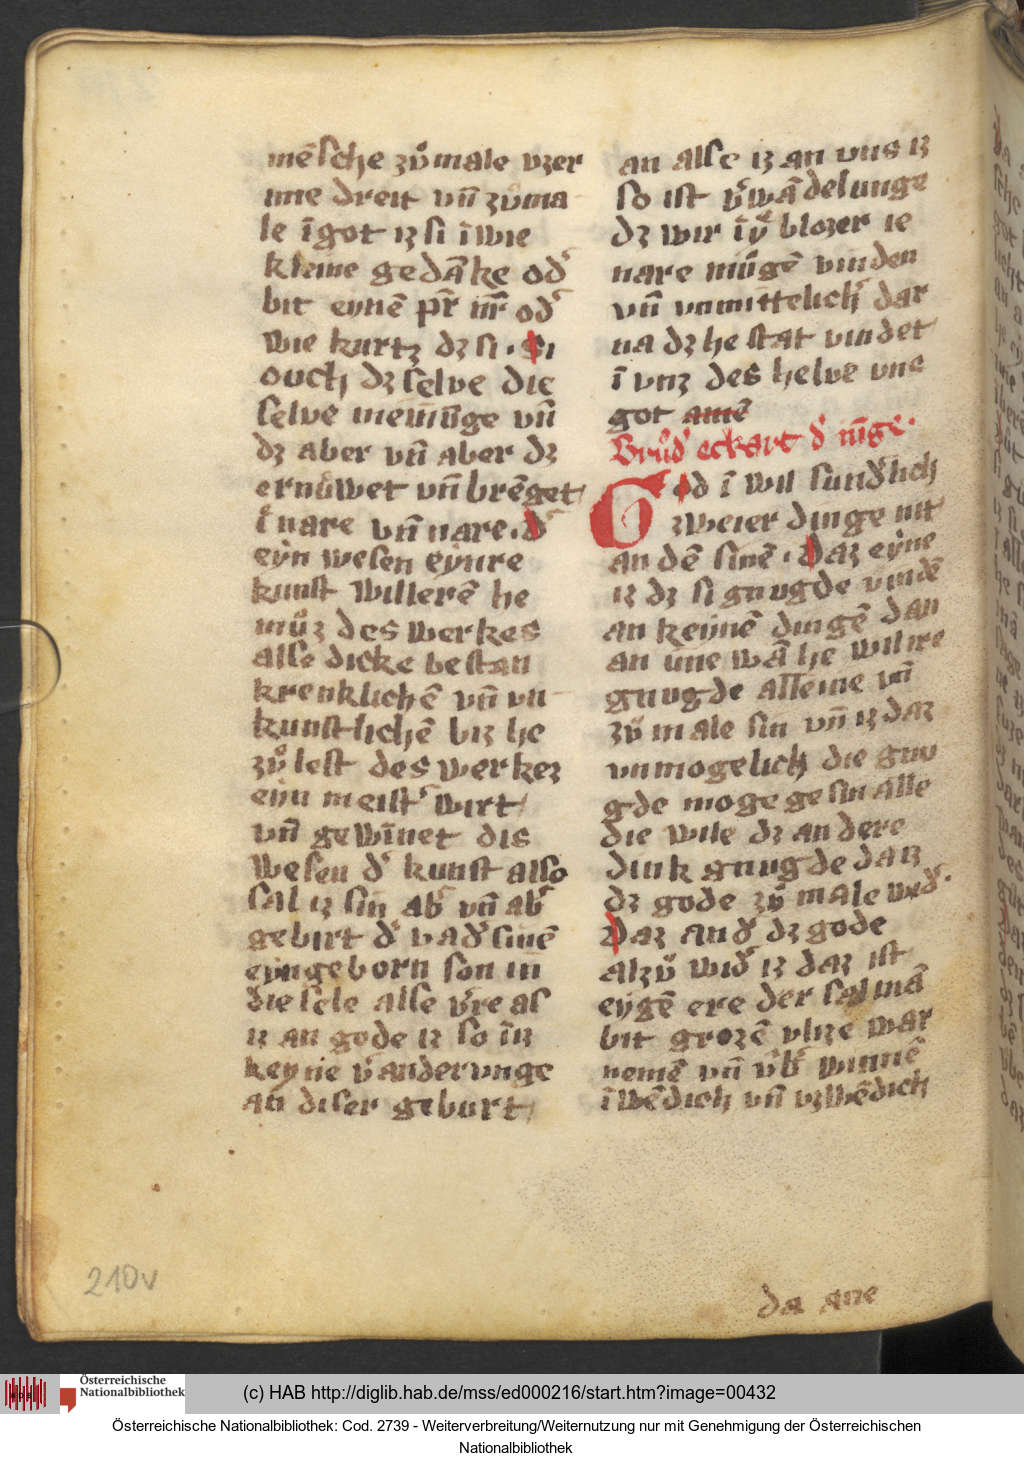 mēsche zů male vzer
inne dreit vn̄ zů ma
le ī got iz si ī wie
kleine gedāke od͛
bit eynē pr̄ nr̄ od͛
wie kurtz dz si · Si
ouch dz selve die
selve meninge vn̄
dz aber vn̄ aber dz
ernuwet vn̄ brēget
ī nare vn̄ nare · d͛
eyn wesen eynre
kunst willerē he
můz des werkes
alse dicke bestan
krenklichē vn̄ vn
kunstlichē biz he
zů lest des werkez
eyn meist͛ wirt
vn̄ gewīnet dis
wesen d͛ kunst also
sal iz sin ab͛ vn̄ ab͛
gebirt d͛ vad͛ sinē
eyngeborn son in
die sele alse v͛re als
iz an gode iz so ī iz
keyne v͛anderunge
an diser geburt
an alse iz an vns iz
so ist v͛wādelunge
dz wir ī ỽ͛ blozer ie
nare můgē vinden
vn̄ vnmittelich͛ dar
na dz he stat vindet
ī vnz des helve vne
got amē
Brůd͛ eckart d͛ iūge ·
God ī wil sund͛lich
zweier dinge nit
an dē sinē · Daz eyne
iz dz si gnugde vindē
an keynē dingē dan
an ūne wā he wil ire
gnugde alleine vn̄
zů male sin vn̄ iz daz
vnmogelich die gnv
gde moge gesin alle
die wile dz andere
dink gnugde daīz
dz gode zů male wid͛ ·
Daz and͛ dz gode
alzů wid͛ iz daz ist
eygē ere der sal mā
bit grozē vlize war
nemē vn̄ v͛b͛winnē
īwēdich vn̄ vzwēdich
da ane
210v
Österreichische Nationalbibliothek
(c) HAB http://diglib.hab.de/mss/ed000216/start.htm?image=00432
Österreichische Nationalbibliothek: Cod. 2739 - Weiterverbreitung/Weiternutzung nur mit Genehmigung der Österreichischen
Nationalbibliothek